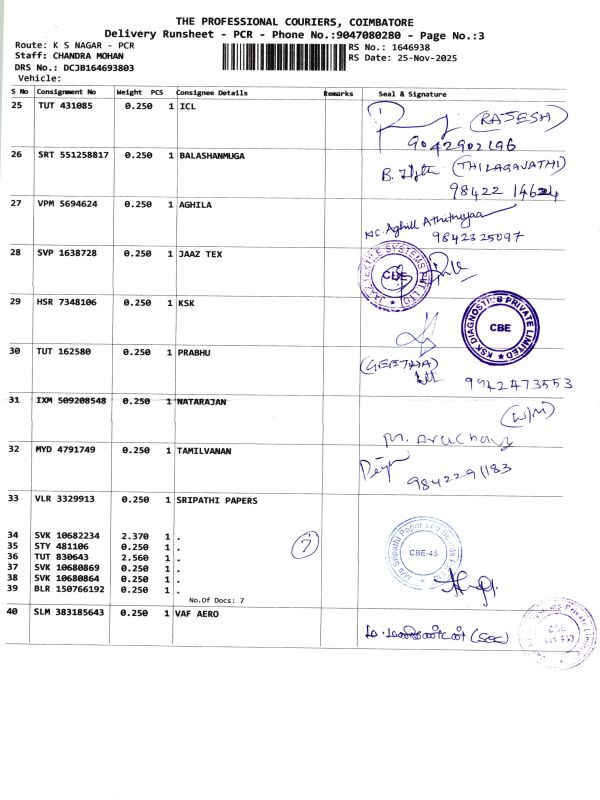 THE PROFESSIONAL COURIERS, COIMBATORE
Delivery Runsheet - PCR - Phone No.:9047080280 - Page No.:3
Route: K S NAGAR - PCR
Staff: CHANDRA MOHAN
DRS No.: DCJB164693803
Vehicle:
RS No.: 1646938
RS Date: 25-Nov-2025
S No Consignment No Weight PCS Consignee Details Remarks Seal & Signature
25 TUT 431085 0.250 1 ICL
(RAJESH)
9042902196
26 SRT 551258817 0.250 1 BALASHANMUGA
B. (THILAGAVATHI)
98422
27 VPM 5694624 0.250 1 AGHILA
9842325097
28 SVP 1638728 0.250 1 JAAZ TEX
JAAZ TEXTILE SYSTEMS PVT LTD
CBE
29 HSR 7348106 0.250 1 KSK
KSK DIAGNOSTICS PRIVATE LIMITED
CBE
30 TUT 162580 0.250 1 PRABHU
(GEETHA)
9942473553
31 IXM 509208548 0.250 1 NATARAJAN
(W/M)
32 MYD 4791749 0.250 1 TAMILVANAN
9842291183
33 VLR 3329913 0.250 1 SRIPATHI PAPERS
34 SVK 10682234 2.370 1 .
35 STY 481106 0.250 1 .
36 TUT 830643 2.560 1 .
37 SVK 10680869 0.250 1 .
38 SVK 10680864 0.250 1 .
39 BLR 150766192 0.250 1 .
7
M/s Sripathi Paper and Boards
CBE-45
No.Of Docs: 7
40 SLM 383185643 0.250 1 VAF AERO
(sec)
CBE